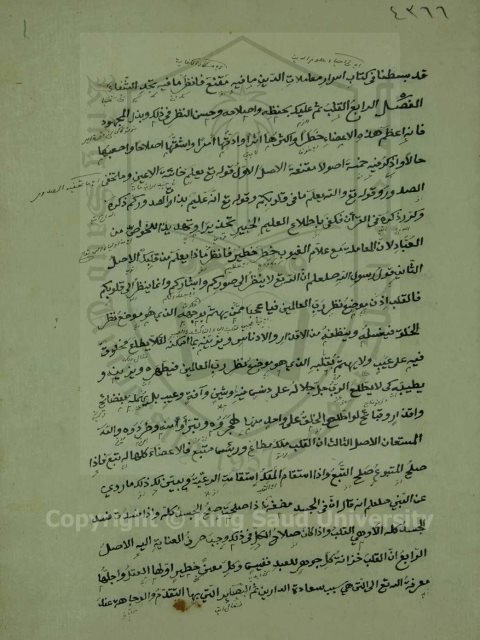 ٤٣٦٦
قد بسطنا فى كتاب اسرار معاملات الدين ما فيه مقنع فانظر ما فيه تجد الشفاء
الفصل الرابع القلب ثم عليك بحفظه واصلاحه وحسن النظر فى ذلك وبذل المجهود
فانه اعظم هذه الاعضاء خطرا واكثرها اثرا وادقها امرا واشقها اصلاحا واصعبها
حالا واذكر فيه خمسة اصول مقنعة الاصل الاول قوله تع يعلم خائنة الاعين وما تخفى
الصدور وقوله تع والله يعلم ما فى قلوبكم وقوله تع انه عليم بذات الصدور كم ذكره
وكرر ذكره فى القرآن فكفى باطلاع العليم الخبير تحذيرا وتهديدا للخواص من
العباد لان المعاملة مع علام الغيوب خطر خطير فانظر ماذا يعلم من قلبك الاصل
الثانى قول رسول الله صلعم ان الله تع لا ينظر الى صوركم وابشاركم وانما ينظر الى قلوبكم
فالقلب اذن موضع نظر رب العالمين فيا عجبا ممن يهتم بوجهه الذى هو موضع نظر
الخلق فيغسله وينظفه من الاقذار والادناس ويزينه بما امكن لئلا يطلع مخلوق
فيه على عيب ولا يهتم بقلبه الذى هو موضع نظر رب العالمين فيطهره ويزينه و
يطيبه كى لا يطلع الرب جل جلاله على دنس فيه وشين وآفة وعيب بل يهمله بفضائح
واقذار وقبائح لو اطلع الخلق على واحد منها لهجروه وتبرأوا منه وطردوه والله
المستعان الاصل الثالث ان القلب ملك مطاع ورئيس متبع فالاعضاء كلها له تبع فاذا
صلح المتبوع صلح التبع واذا استقام الملك استقامت الرعية ويبين لك ذلك ما روى
عن النبى صلعم انه قال ان فى الجسد مضغة اذا صلحت صلح الجسد كله واذا فسدت فسد
الجسد كله الا وهى القلب واذا كان صلاح الكل فى ذلك وجب صرف العناية اليه الاصل
الرابع ان القلب خزانة كل جوهر للعبد نفيس وكل معنى خطير اولها العقل واجلها
معرفة الله تع التى هى سبب سعادة الدارين ثم البصائر التى بها التقدم والوجاهة عند
Copyright © King Saud University